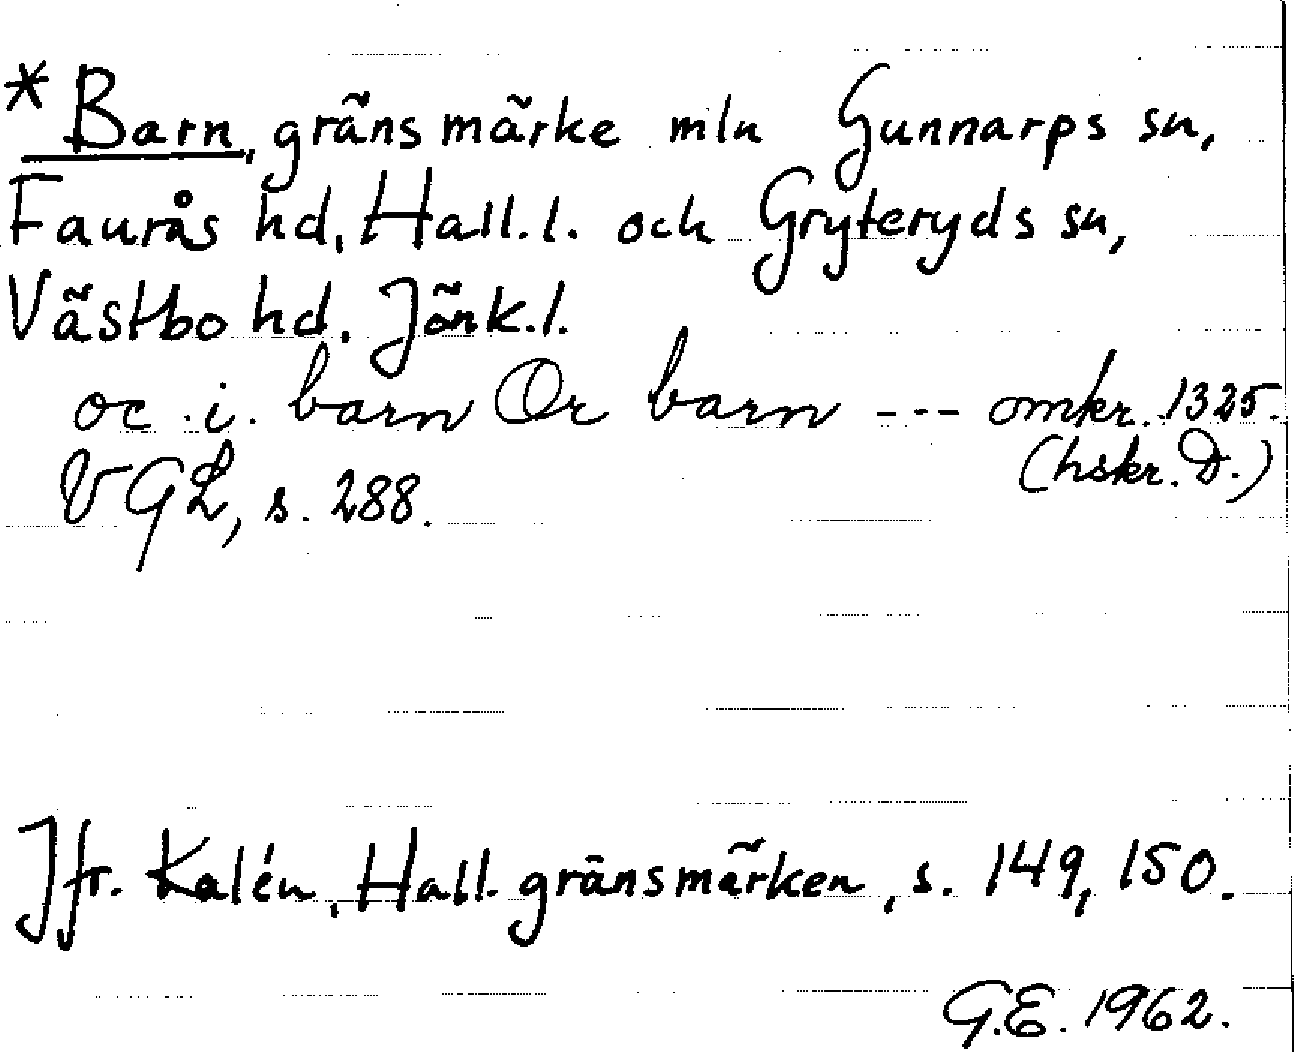 * Barn, gränsmärke mln Gunnarps sn,
Faurås hd, Hall. l. och Gryteryds sn,
Västbo hd. Jönk. l.
oc .i. barn Or barn --- omkr. 1325.
(hskr. D.)
VGL, s. 288.
Jfr. Kalén, Hall. gränsmärken, s. 149, 150.
G.E. 1962.